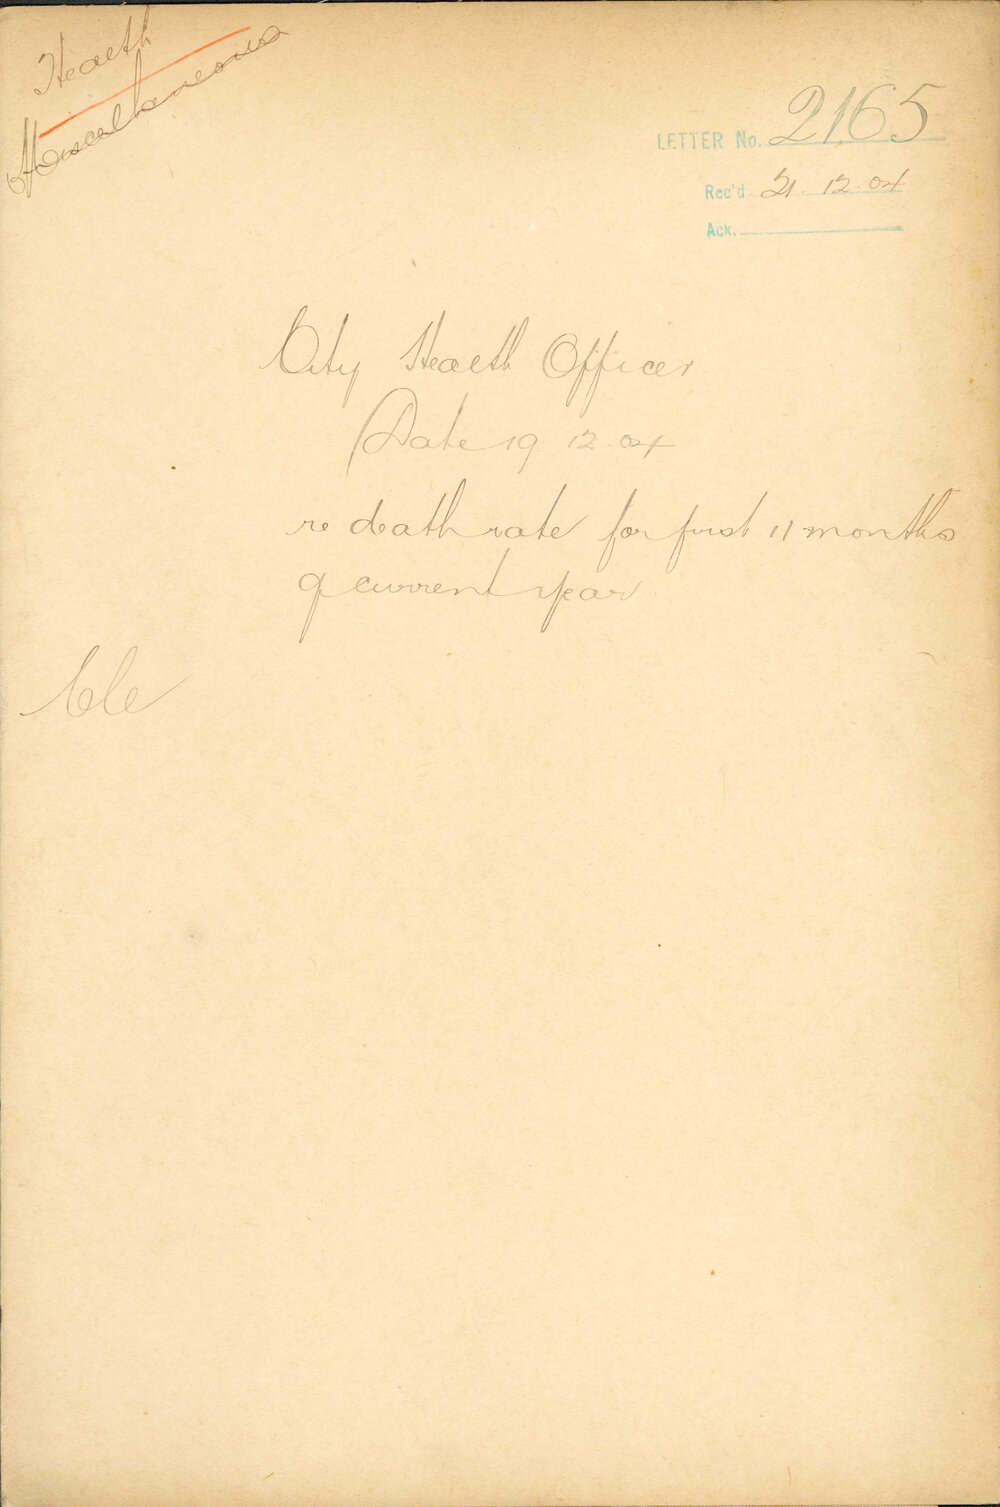 Health
Miscellaneous
LETTER No. 2165
Rec'd 21. 12. 04
Ack.
City Health Officer
Date 19 12. 04
re death rate for first 11 months
of current year